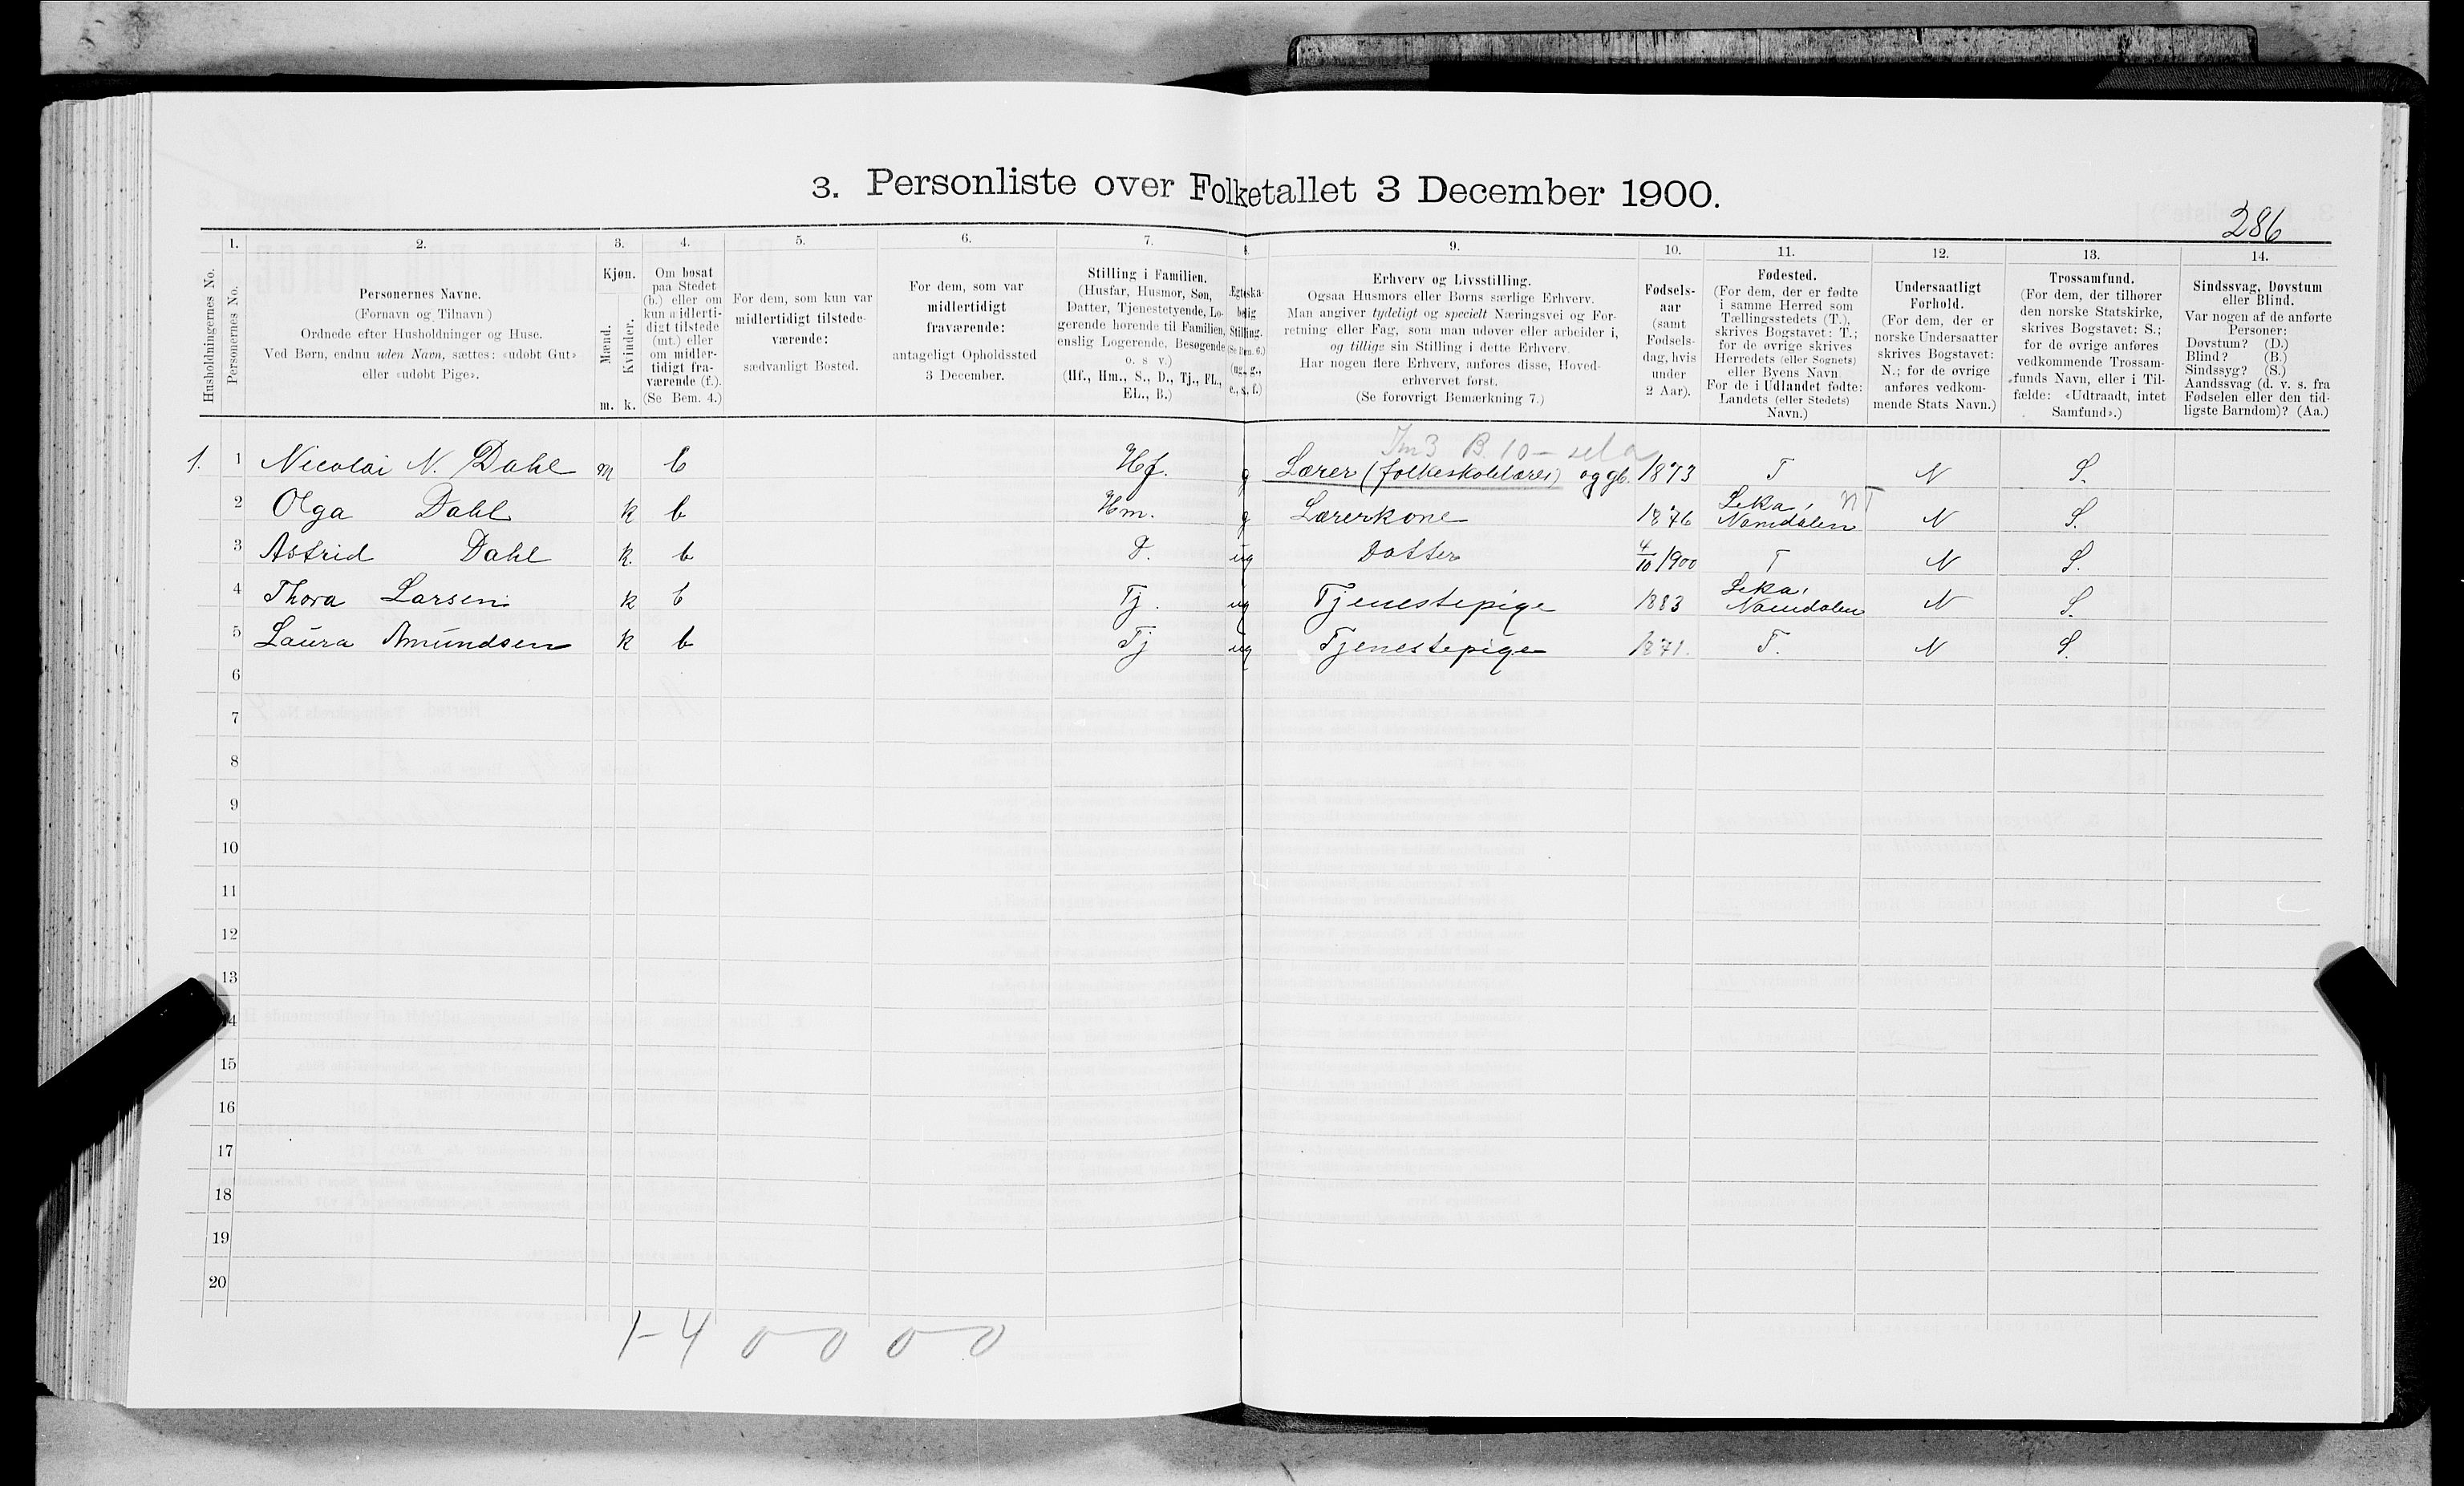 3. Personliste over Folketallet 3 December 1900.
286
1. 2. 3. 4. 5. 6. 7. 8. 9. 10. 11. 12. 13. 14.
Husholdningernes No.
Personernes No.
Personernes Navne.
(Fornavn og Tilnavn)
Ordnede efter Husholdninger og Huse.
Ved Børn, endnu uden Navn, sættes: «udøbt Gut»
eller «udøbt Pige».
Kjøn.
Mænd.
Kvinder.
m. k.
Om bosat
paa Stedet
(b.) eller om
kun midlerti-
digt tilstede
(mt.) eller
om midler-
tidigt fra-
værende (f.).
(Se Bem. 4.)
For dem, som kun var
midlertidigt tilstede-
værende:
sædvanligt Bosted.
For dem, som var
midlertidigt
fraværende:
antageligt Opholdssted
3 December.
Stilling i Familien.
(Husfar, Husmor, Søn,
Datter, Tjenestetyende, Lo-
gerende hørende til Familien,
enslig Logerende, Besøgende
o. s v.)
(Hf., Hm., S., D., Tj., FL.,
EL., B.)
Ægteska-
belig
Stilling.
(Se Bem. 6.)
(ug., g.,
e., s., f.)
Erhverv og Livsstilling.
Ogsaa Husmors eller Børns særlige Erhverv.
Man angiver tydeligt og specielt Næringsvei og For-
retning eller Fag, som man udøver eller arbeider i,
og tillige sin Stilling i dette Erhverv.
Har nogen flere Erhverv, anføres disse, Hoved-
erhvervet først.
(Se forøvrigt Bemærkning 7.)
Fødsels-
aar
(samt
Fødsels-
dag, hvis
under
2 Aar).
Fødested.
(For dem, der er fødte
i samme Herred som
Tællingsstedets (T.),
skrives Bogstavet: T.;
for de øvrige skrives
Herredets (eller Sognets)
eller Byens Navn
For de i Udlandet fødte:
Landets (eller Stedets)
Navn.)
Undersaatligt
Forhold.
(For dem, der er
norske Undersaatter
skrives Bogstavet:
N.; for de øvrige
anføres vedkom-
mende Stats Navn.)
Trossamfund.
(For dem, der tilhører
den norske Statskirke,
skrives Bogstavet: S.;
for de øvrige anføres
vedkommende Trossam-
funds Navn, eller i Til-
fælde: «Udtraadt, intet
Samfund».)
Sindssvag, Døvstum
eller Blind.
Var nogen af de anførte
Personer:
Døvstum? (D.)
Blind? (B.)
Sindssyg? (S.)
Aandssvag (d. v. s. fra
Fødselen eller den tid-
ligste Barndom)? (Aa.)
1. 1 Nicolai N. Dahl m b Hf. g Lærer (folkeskolelærer) og gb. 1873 T N S.
2 Olga Dahl k b Hm. g Lærerkone 1876 Leka, Namdalen NT N S.
3 Astrid Dahl k. b D. ug Datter 4/10 1900 T N S.
4 Thora Larsen k b Tj. ug Tjenestepige 1883 Leka, Namdalen N S.
5 Laura Amundsen k b Tj ug Tjenestepige 1871. T. N S.
6
7
8
9
10
11
12
13
14
15
16
17
18
19
20
1-4 0 0 0 0